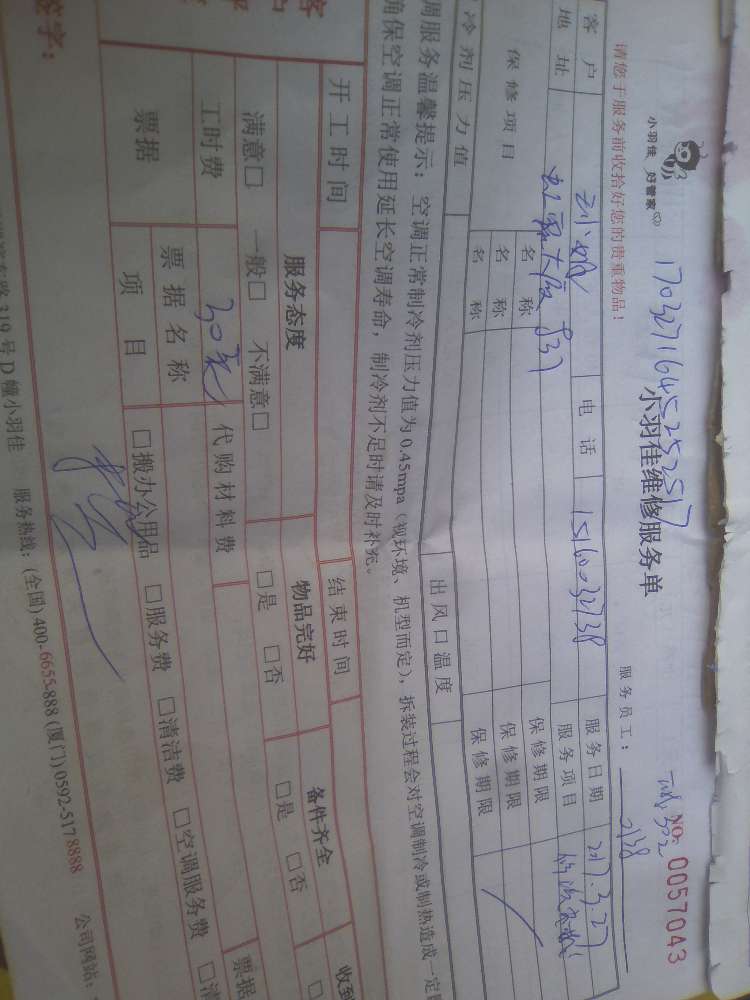 小羽佳 好管家
170327164525257
小羽佳维修服务单
NO: 0057043
请您于服务前收拾好您的贵重物品！
服务员工：
客户
电话 15160032738
服务日期 2017.3.27
地址 837
服务项目
保修项目 名称 保修期限
名称 保修期限
名称 保修期限
冷剂压力值 出风口温度
调服务温馨提示：空调正常制冷剂压力值为0.45mpa（视环境、机型而定），拆装过程会对空调制冷或制热造成一定
确保空调正常使用延长空调寿命，制冷剂不足时请及时补充。
开工时间 结束时间
服务态度 物品完好 备件齐全 收到
满意□ 一般□ 不满意□ □是 □否 □是 □否 □
工时费 30元 代购材料费
票据 票据名称 票据
项目 □搬办公用品 □服务费 □清洁费 □空调服务费 □清
签字：
路319号D幢小羽佳 服务热线：(全国)400-6655-888 (厦门)0592-5178888 公司网站：